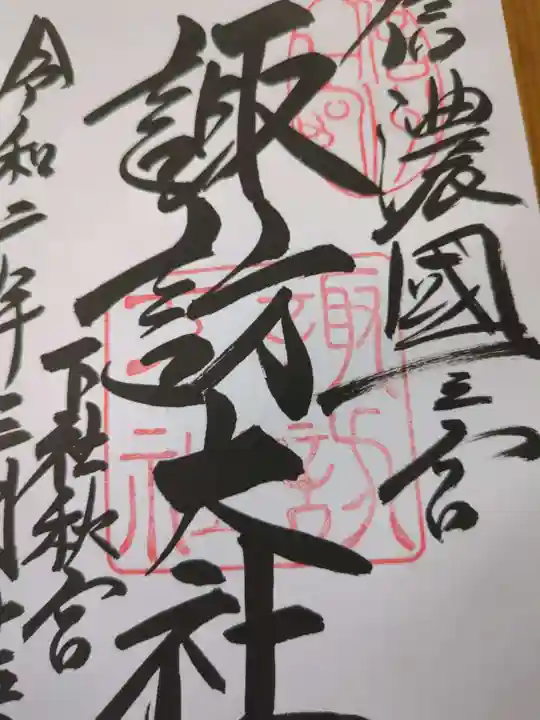 信濃國一之宮
諏訪大社
下社秋宮
令和二年三月十三
諏訪
大社